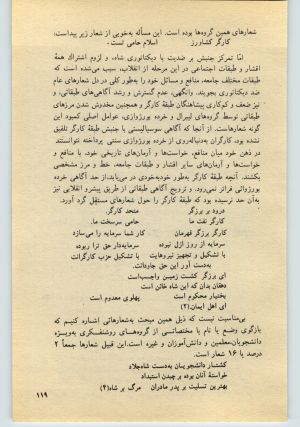 شعارهای همین گروهها بوده است. این مسأله به‌خوبی از شعار زیر پیداست:
کارگر کشاورز اسلام حامی تست.
امّا تمرکز جنبش بر ضدیت با دیکتاتوری شاه، و لزوم اشتراك همهٔ
اقشار و طبقات اجتماعی در این مرحله از انقلاب، سبب می‌شده است که
طبقات مختلف جامعه، منافع و مسائل خود را به‌طور کلی در دل شعارهای عام
ضد دیکتاتوری بجویند. وانگهی، عدم گسترش و رشد آگاهی‌های طبقاتی، و
نیز ضعف و کم‌کاری پیشاهنگان طبقهٔ کارگر و همچنین مخدوش شدن مرزهای
طبقاتی توسط گروه‌های لیبرال و خرده بورژوازی، عوامل اصلی کمبود این
گونه شعارهاست. از آنجا که آگاهی سوسیالیستی با جنبش طبقهٔ کارگر تلفیق
نشده بود، کارگران به‌دنباله‌روی از خرده بورژوازی سنتی پرداخته نتوانستند
در ذهن خود میان منافع، خواست‌ها و آرمان‌های تاریخی خود، با منافع و
خواست‌ها و آرمان‌های سایر اقشار و طبقات جامعه، خط و مرز مشخصی
بکشند. آنچه طبقهٔ کارگر به‌طور خودبه‌خودی در می‌یابد، از حد آگاهی خرده
بورژوائی فراتر نمی‌رود. و ترویج آگاهی طبقاتی از طریق پیشرو انقلابی نیز
به‌آن حد نرسیده بود که طبقهٔ کارگر را حول شعارهای مستقل گرد آورد.
درود بر برزگر متحد کارگر.
کارگر نفت ما حامی سرسخت ما.
کارگر برزگر قهرمان کار شما سرمایه را می‌سازد
سرمایه از روز ازل نبوده سرمایه‌دار حق ترا ربوده
با تشکیل و تجهیز نیروهایت با تشکیل حزب کارگرانت
به‌دست آور این حق جاودانت.
ای برزگر کشت زمین واجب‌است
دهقان بدان که این شاه خائن است
بختیار محکوم است پهلوی معدوم است
ای اهل ایمان.(۳)
بی‌مناسبت نیست که ذیل همین مبحث به‌شعارهائی اشاره کنیم که
بازگوی وضع یا نام یا مختصاتی از گروه‌های روشنفکری به‌ویژه
دانشجویان، معلمین و دانش‌آموزان و غیره است. این قبیل شعارها جمعاً ۲
درصد یا ۱۶ شعار است.
کشتار دانشجویان به‌دست شاه جلاد
خواستهٔ آنان بوده برچیدن استبداد
بهترین تسلیت بر پدر مادران مرگ بر شاه(۴)
۱۱۹